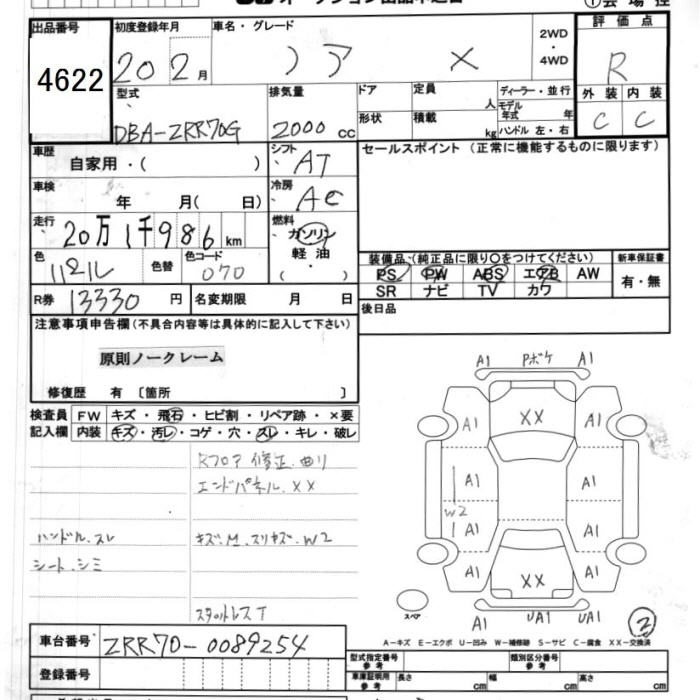 出品番号
4622
初度登録年月
20 2月
車名・グレード
ノア X
2WD
・
4WD
評価点
R
外装 内装
C C
型式
DBA-ZRR70G
排気量
2000 cc
ドア
定員
人
形状
積載
kg
ディーラー・並行
モデル年式 年
ハンドル 左・右
車歴
自家用・( )
シフト
AT
セールスポイント(正常に機能するものに限ります)
車検
年 月( 日)
冷房
AC
走行
20万1千986km
燃料
ガソリン
軽油
( ・ )
色
パール
色替
色コード
070
装備品(純正品に限り○をつけてください)
PS PW ABS エアB AW
SR ナビ TV カワ
新車保証書
有・無
R券 13330円
名変期限 月 日
後日品
注意事項申告欄(不具合内容等は具体的に記入して下さい)
原則ノークレーム
修復歴 有 〔箇所 〕
検査員記入欄
FW キズ・飛石・ヒビ割・リペア跡・×要
内装 キズ・汚レ・コゲ・穴・スレ・キレ・破レ
Rフロア修正、曲り
エンドパネル、XX
ハンドル、スレ
キズ、M、スリキズ、W2
シート、シミ
スタットレスT
A1 Pボケ A1
XX
A1 A1
A1 A1
W2
A1 A1
A1 A1
XX
スペア
A1 UA1 UA1
2
A-キズ E-エクボ U-凹み W-補修跡 S-サビ C-腐食 XX-交換済
車台番号
ZRR70-0089254
登録番号
型式指定番号
参考
類別区分番号
参考
車庫証明用
参考
長さ cm
幅 cm
高さ cm